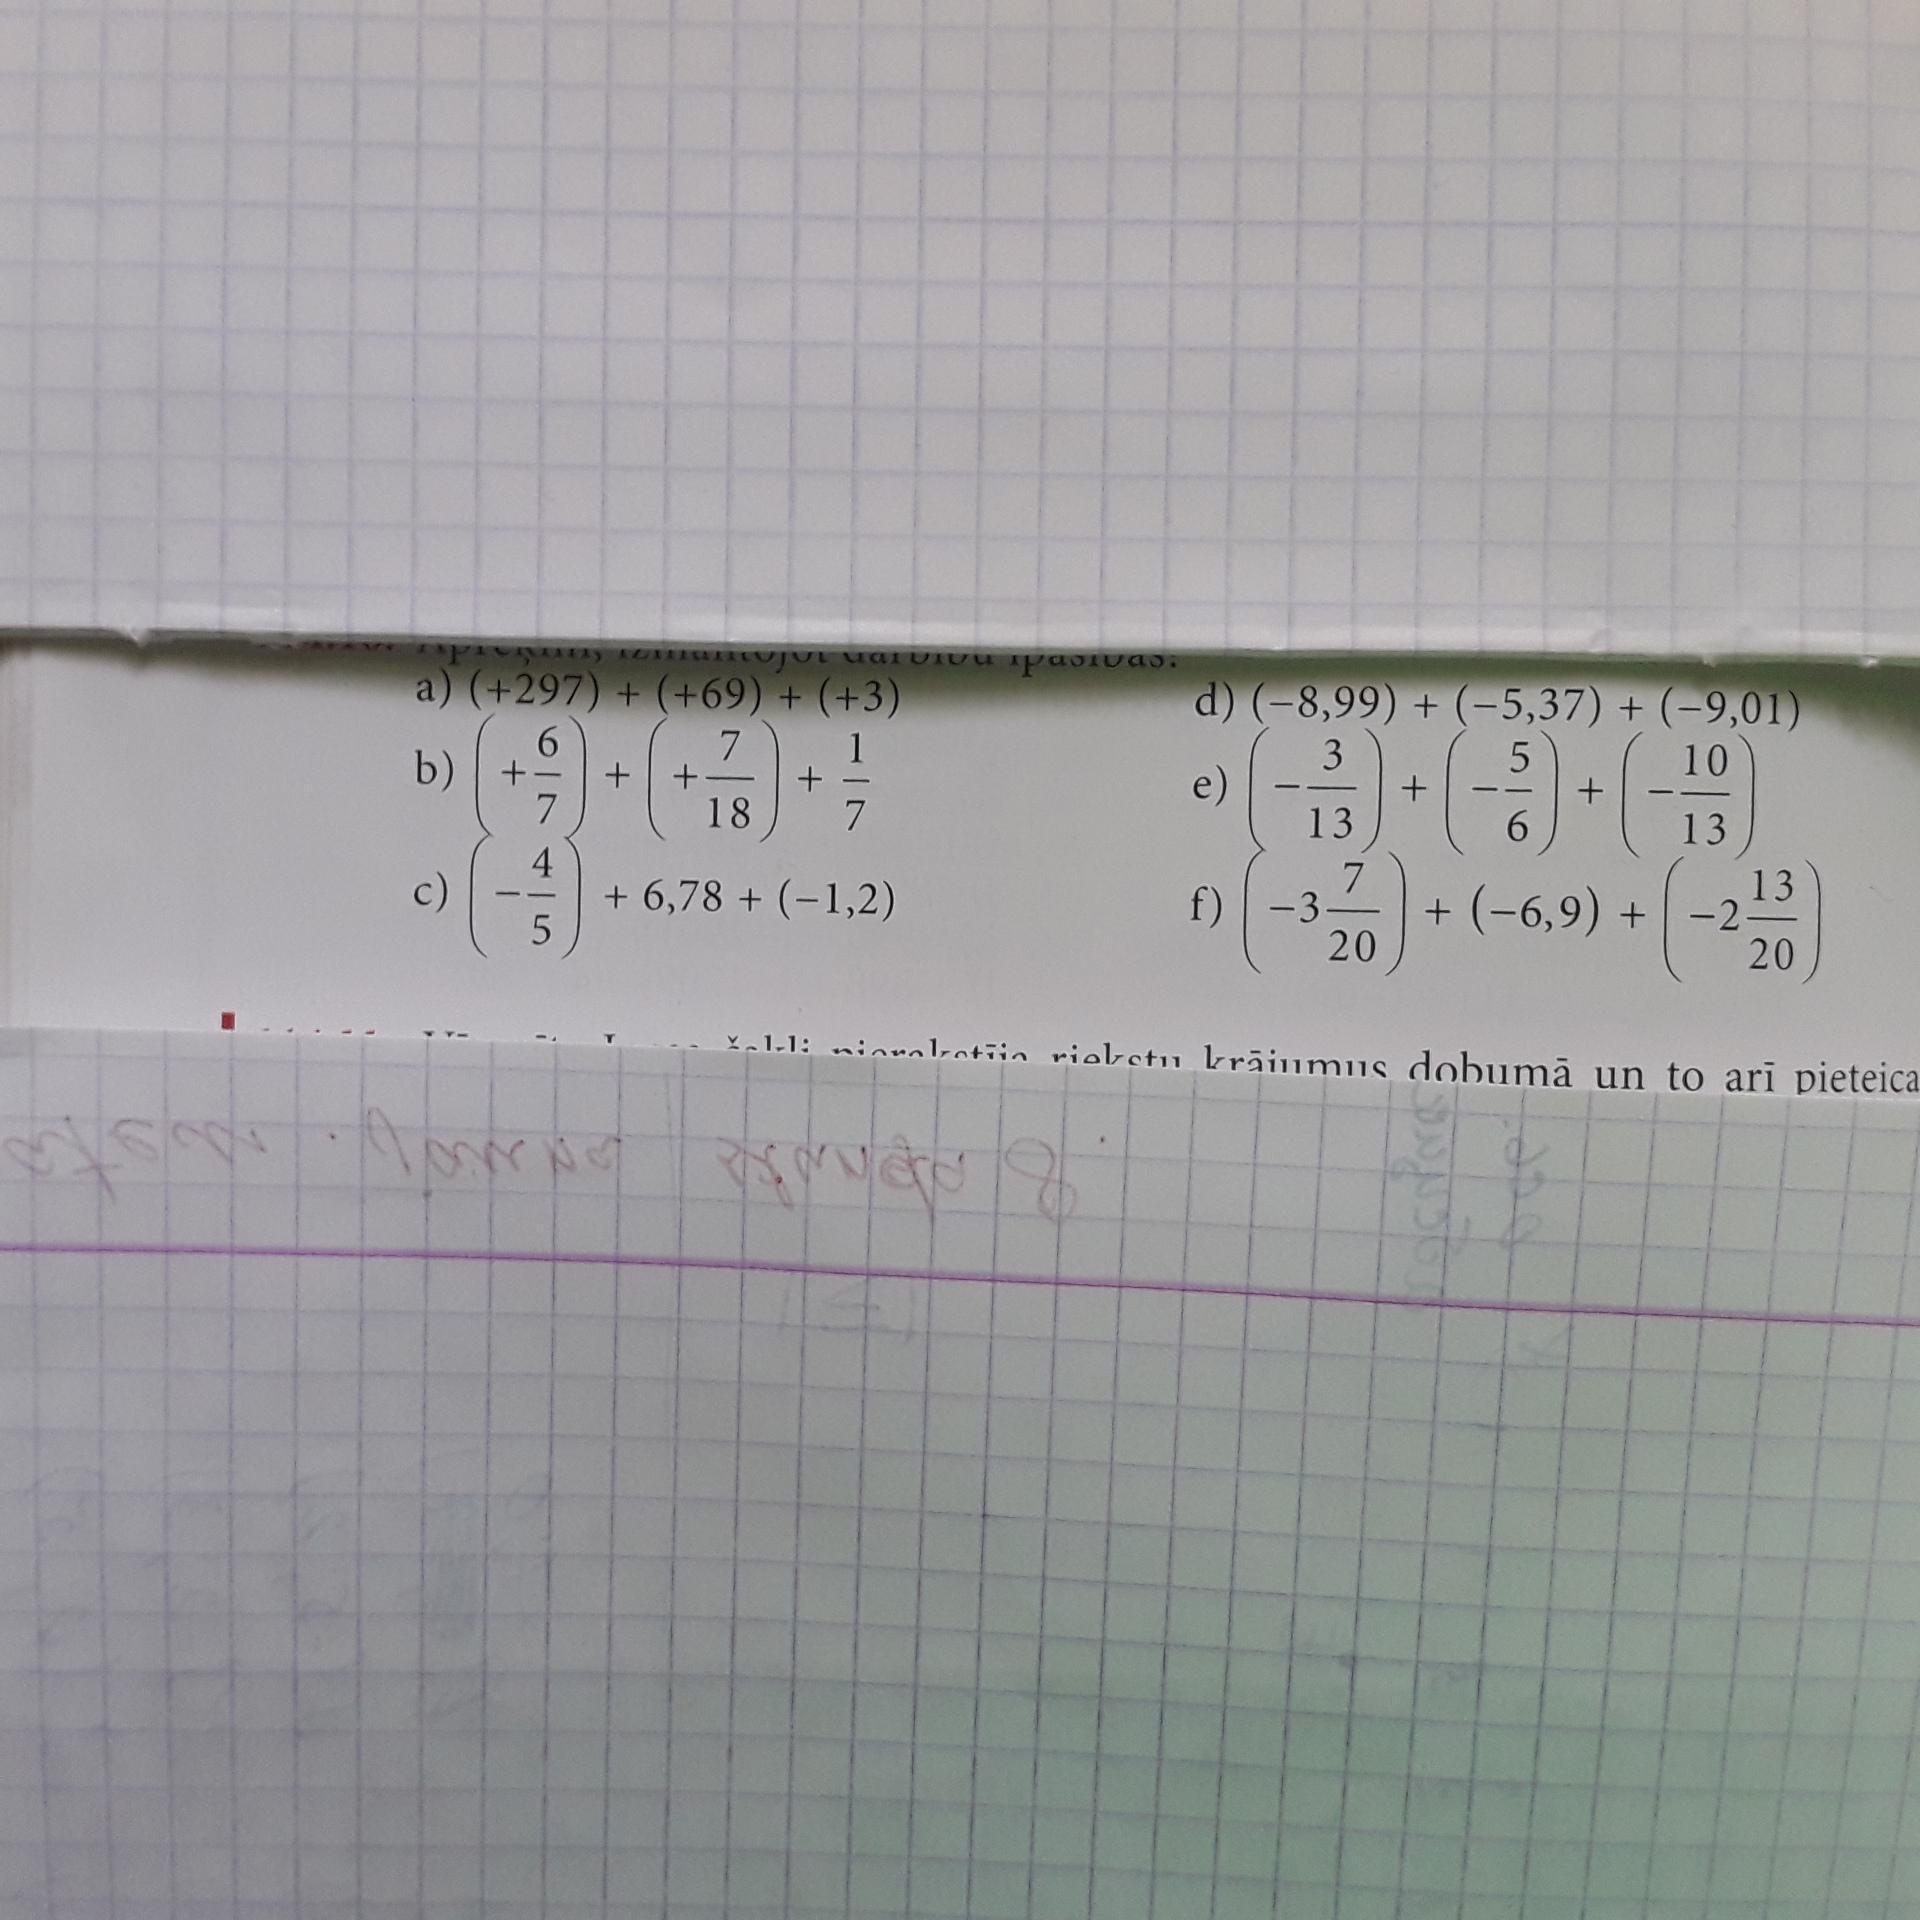 Aprēķini, izmantojot darbību īpašības!
a) (+297) + (+69) + (+3)
b) (+6/7) + (+7/18) + 1/7
c) (−4/5) + 6,78 + (−1,2)
d) (−8,99) + (−5,37) + (−9,01)
e) (−3/13) + (−5/6) + (−10/13)
f) (−3 7/20) + (−6,9) + (−2 13/20)
riekstu krājumus dobumā un to arī pieteica